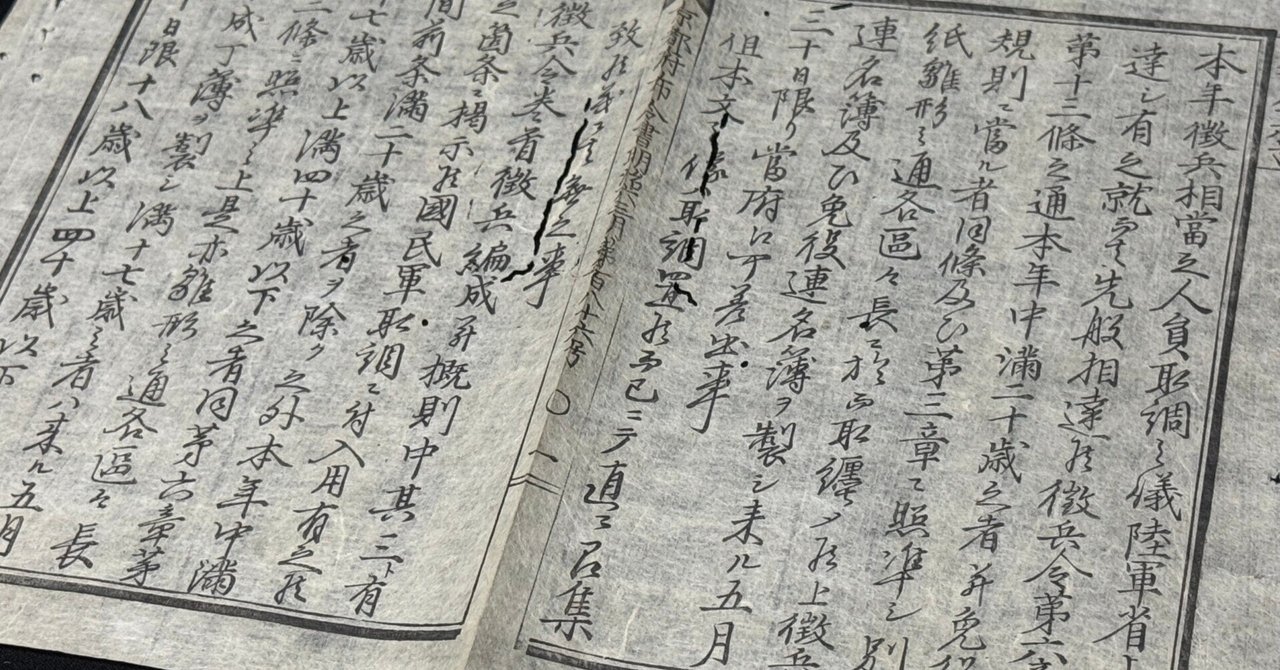 本年徴兵相當之人員取調之儀陸軍省
達シ有之就而者先般相達候徴兵令第六
第十三條之通本年中満二十歳之者并免役
規則ニ當ル者同條及ヒ第三章ニ照準シ別
紙雛形之通各區々長ニ於而取纒メ候上徴兵
連名簿及ヒ免役連名簿ヲ製シ来ル五月
三十日限リ當府江可差出事
但本文之條取調置候而已ニテ直ニ召集
致候義ニ者無之事
京都府布令書明治 三月第百八十六号
徴兵令巻首徴兵編成并概則中其三ニ有
之箇条ニ揭示候國民軍取調ニ付入用有之候
間前条満二十歳之者ヲ除ク之外本年中満
十七歳以上満四十歳以下之者同第六章第
二條ニ照準之上是亦雛形之通各區々長
成丁簿ヲ製シ満十七歳之者ハ来ル五月
日限十八歳以上四十歳以下